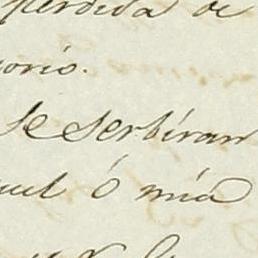 perdida de
orio.
Se serbiran
uel ó mia